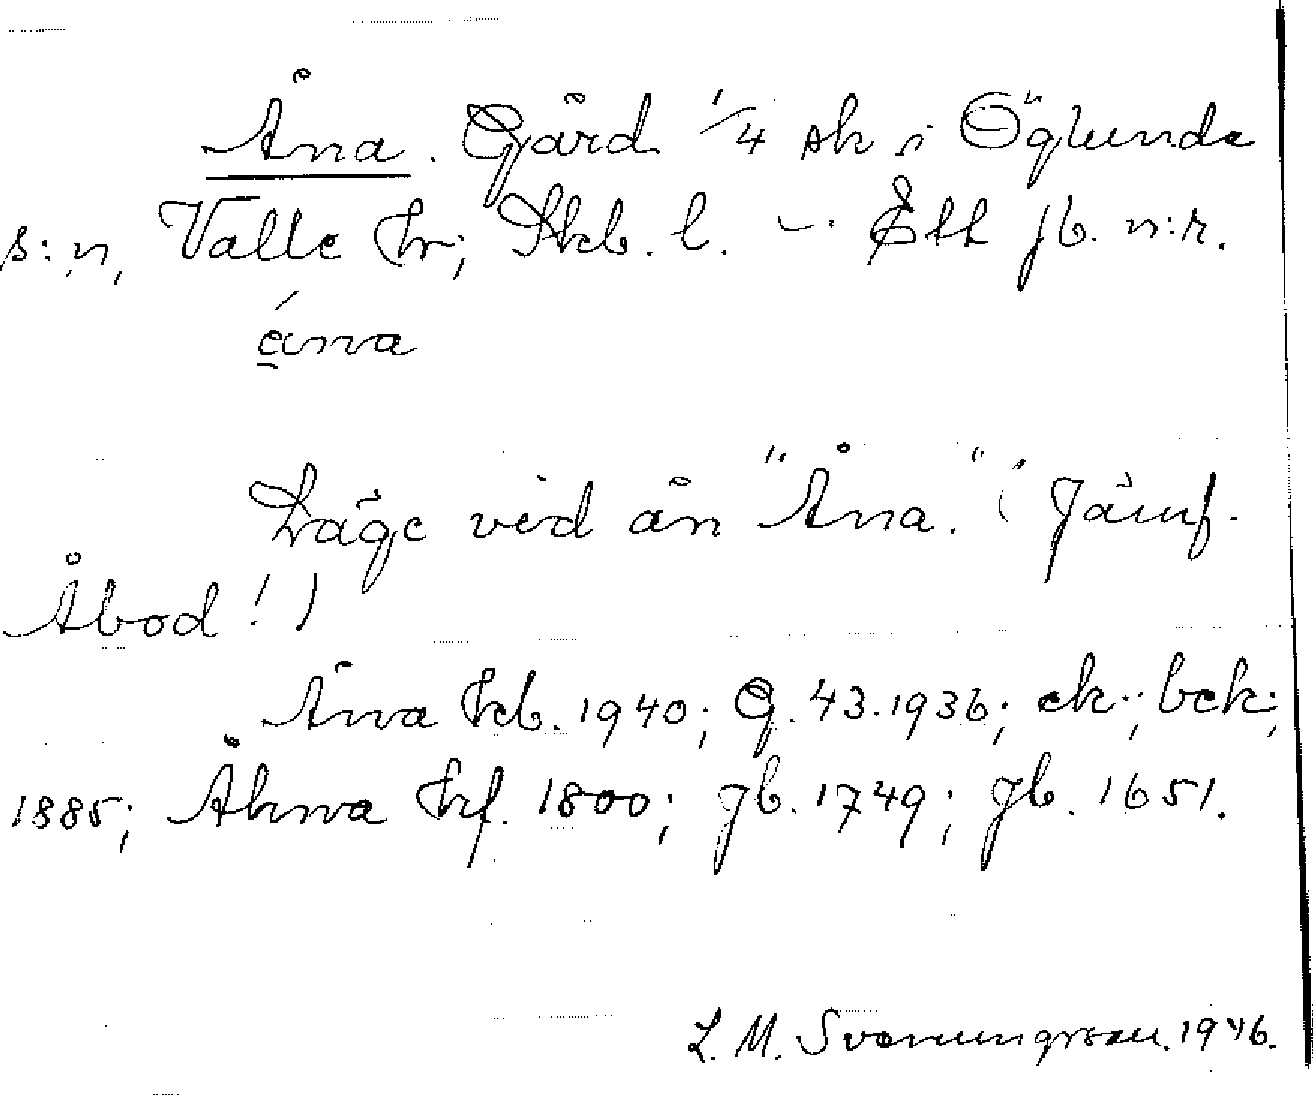 Åna. Gård 1/4 sk i Öglunda
s:n, Valle hr; Skb. l. — Ett jb. n:r.
Läge vid ån "Åna." (Jämf.
Åbod!)
Åna kb. 1940; G. 43.1936; ek; bek;
1885; Åhna hf. 1800; jb. 1749; jb. 1651.
L. M. Svanungsson. 1946.